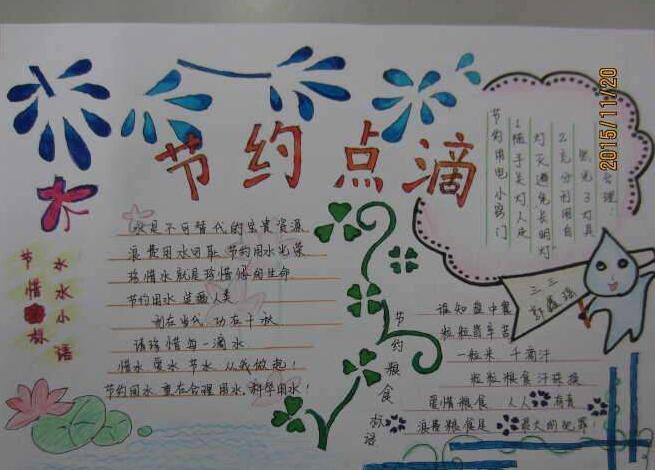 节约点滴
节惜
水水小语
水是不可替代的宝贵资源
浪费用水可耻 节约用水光荣
珍惜水就是珍惜
生命
节约用水 造福人类
利在当代 功在千秋
请珍惜每一滴水
惜水 爱水 节水 从我做起!
节约用水 重在合理用水,科学用水!
节约用电小窍门
1随手关灯人走
灯灭避免长明灯
2充分利用自
然光3灯具
合理:
2015/11/20
三三
节约粮食 标语
谁知盘中餐
粒粒皆辛苦
一粒米 千滴汗
粒粒粮食汗珠换
爱惜粮食 人人有责
浪费粮食是最大的犯罪!